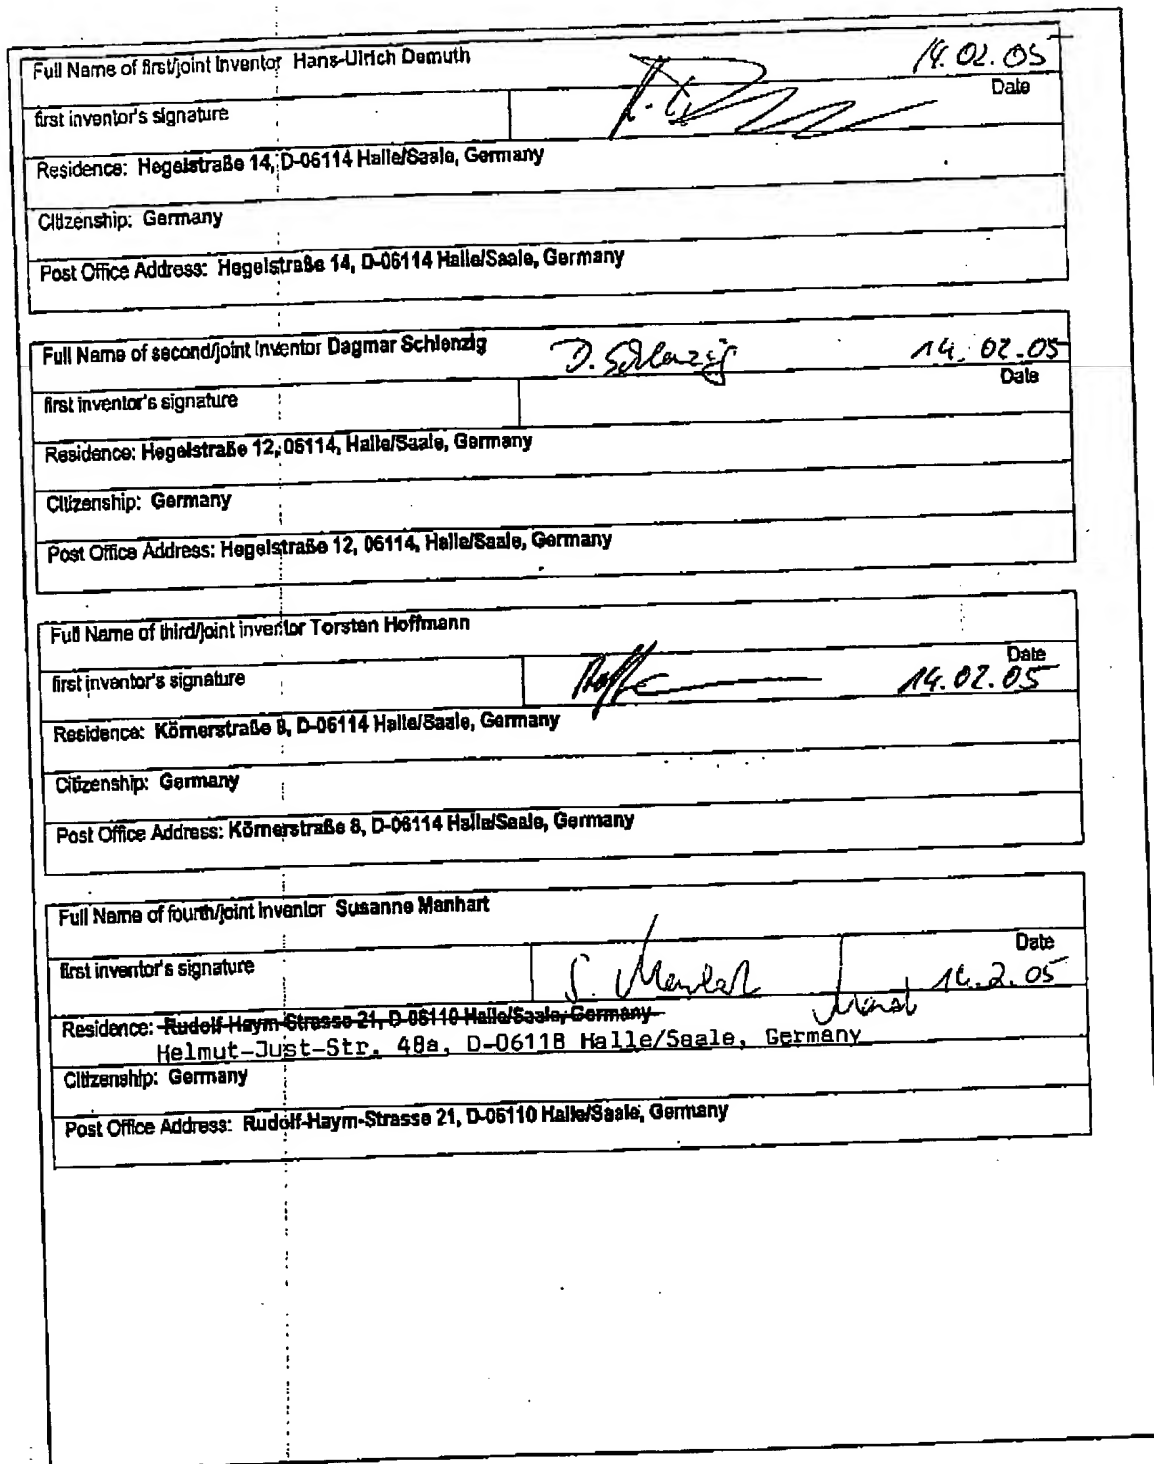 Full Name of first/joint Inventor Hans-Ulrich Demuth 14.02.05
Date
first inventor's signature
Residence: Hegelstraße 14, D-06114 Halle/Saale, Germany
Citizenship: Germany
Post Office Address: Hegelstraße 14, D-06114 Halle/Saale, Germany
Full Name of second/joint Inventor Dagmar Schlenzig D. Schlenzig 14.02.05
Date
first inventor's signature
Residence: Hegelstraße 12, 06114, Halle/Saale, Germany
Citizenship: Germany
Post Office Address: Hegelstraße 12, 06114, Halle/Saale, Germany
Full Name of third/joint inventor Torsten Hoffmann
Date
first inventor's signature 14.02.05
Residence: Körnerstraße 8, D-06114 Halle/Saale, Germany
Citizenship: Germany
Post Office Address: Körnerstraße 8, D-06114 Halle/Saale, Germany
Full Name of fourth/joint Inventor Susanne Manhart
Date
first inventor's signature S. Manhart 14.2.05
Residence: Rudolf-Haym-Strasse 21, D-06110 Halle/Saale, Germany
Helmut-Just-Str. 48a, D-06118 Halle/Saale, Germany
Citizenship: Germany
Post Office Address: Rudolf-Haym-Strasse 21, D-06110 Halle/Saale, Germany